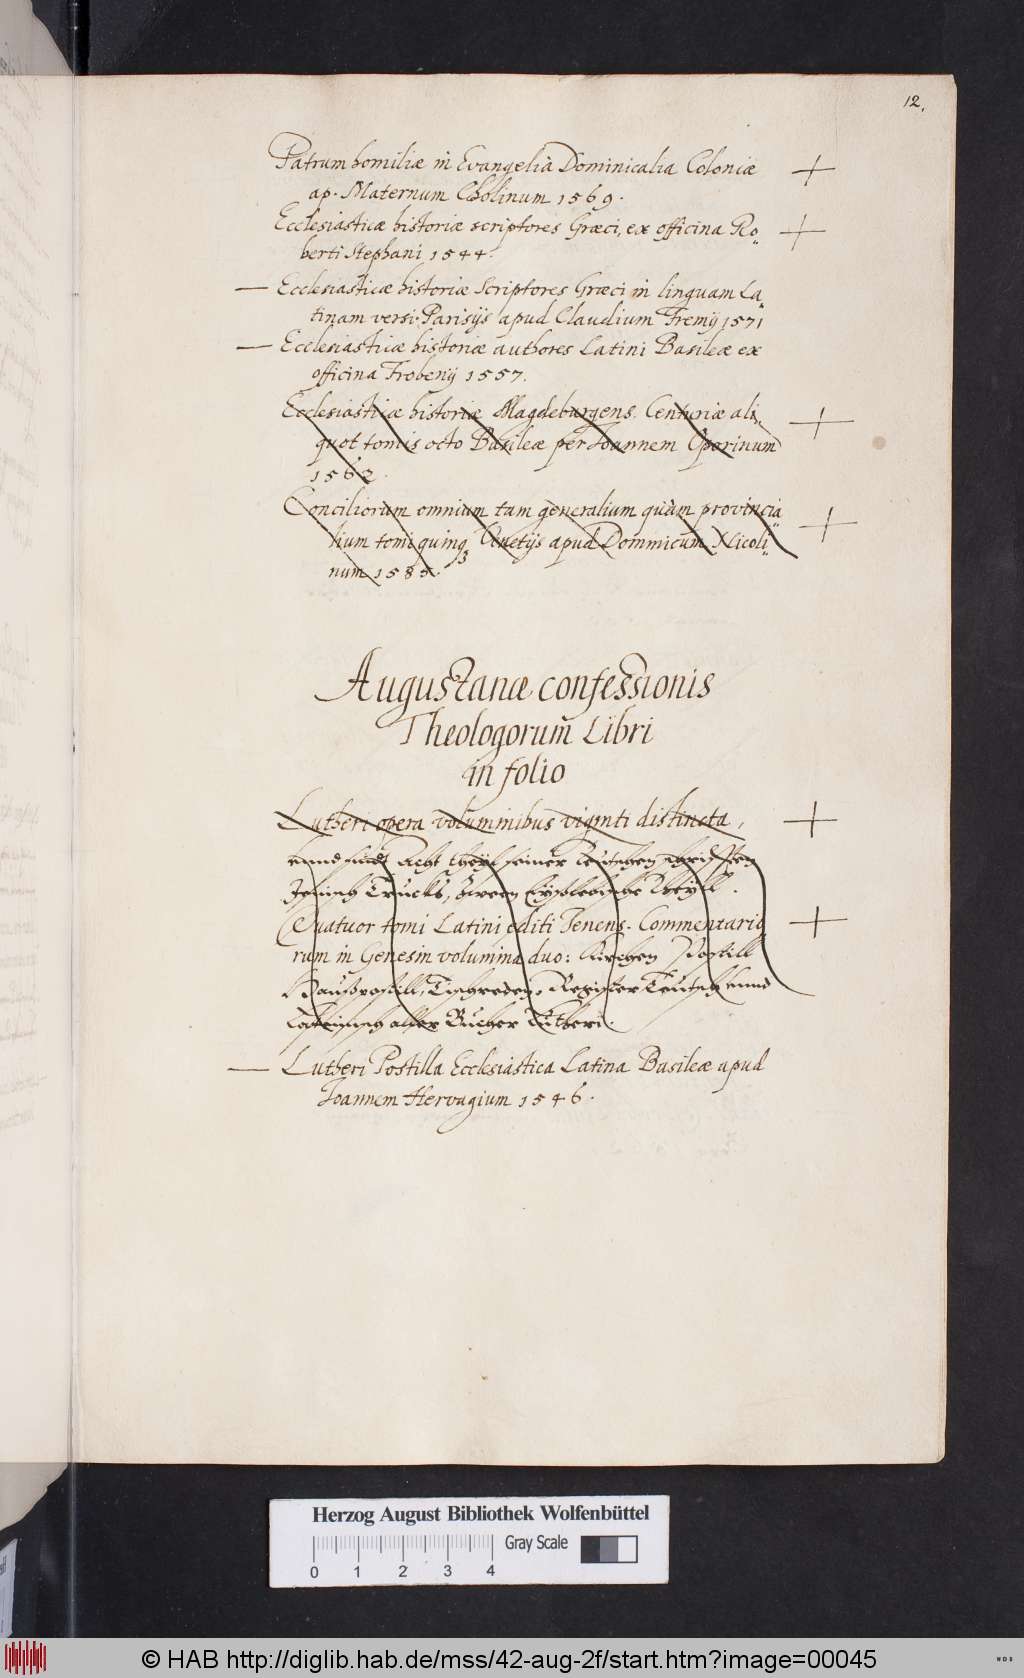 12.
Patrum homiliæ in Evangelia Dominicalia Coloniæ
ap. Maternum Cholinum 1569.
Ecclesiasticæ historiæ scriptores Græci, ex officina Ro„
berti Stephani 1544.
— Ecclesiasticæ historiæ Scriptores Græci in linguam La„
tinam versi. Parisijs apud Claudium Fremij 1571
— Ecclesiasticæ historiæ authores Latini Basileæ ex
officina Frobenij 1557.
Ecclesiasticæ historiæ Magdeburgens. Centuriæ ali„
quot tomis octo Basileæ per Joannem Oporinum
1562.
Conciliorum omnium tam generalium quàm provincia
lium tomi quinq3 Venetijs apud Dominicum Nicoli„
num 1585.
Augustanæ confessionis
Theologorum Libri
in folio
Lutheri opera voluminibus viginti distincta,
Acht theyl seiner Teutschen
Jenisch Trucks, zween Eyßlebische Theyll.
Quatuor tomi Latini editi Jenens. Commentario
rum in Genesin volumina duo: Kirchen Postill
Haußpostill, Tischreden, Register Teutsch unnd
Lateinisch aller Bücher Lutheri.
— Lutheri Postilla Ecclesiastica Latina Basileæ apud
Joannem Hervagium 1546.
Herzog August Bibliothek Wolfenbüttel
Gray Scale
0 1 2 3 4
© HAB http://diglib.hab.de/mss/42-aug-2f/start.htm?image=00045